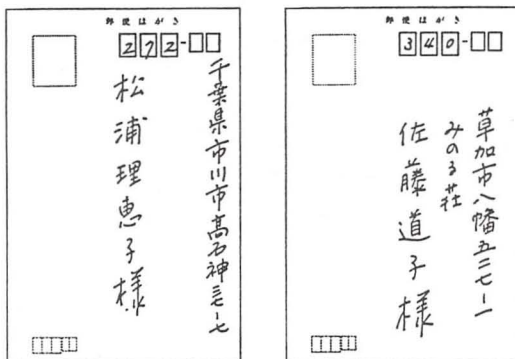 郵便はがき
272-
千葉県市川市高石神三七-七
松浦理恵子様
郵便はがき
340-
草加市八幡五二七-一
みのる荘
佐藤道子様